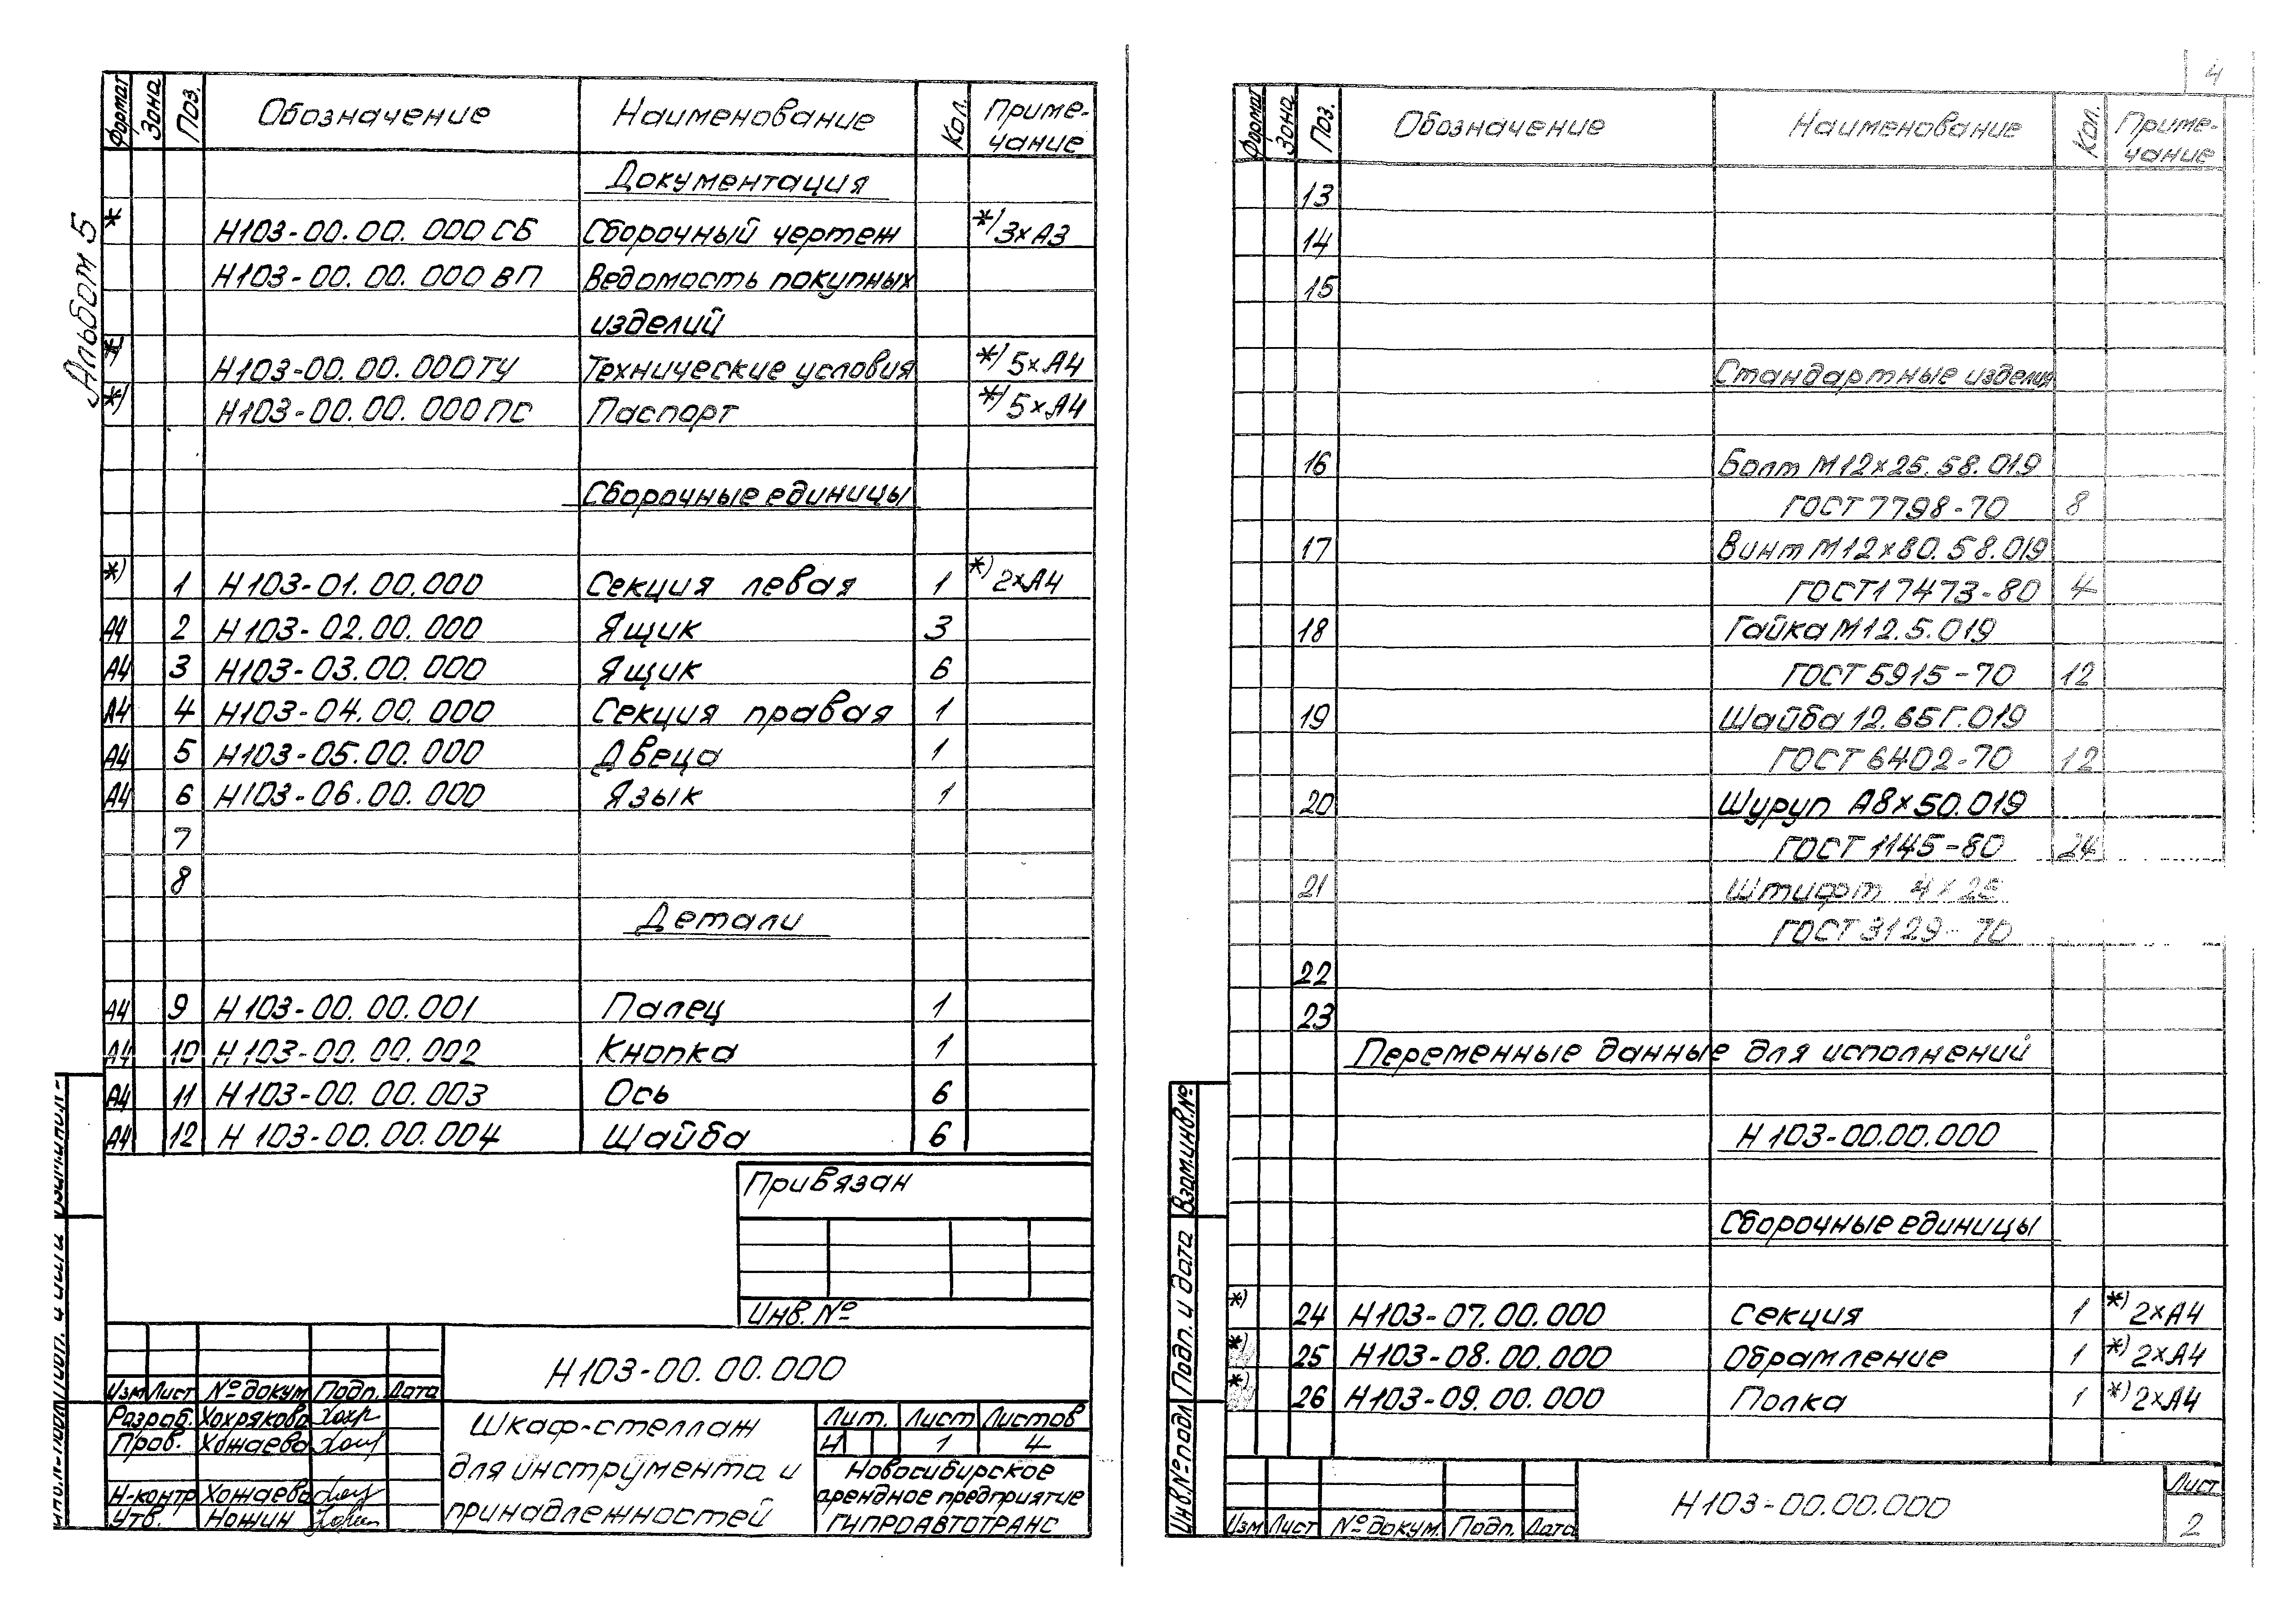 Альбом 5
Формат Зона Поз. Обозначение Наименование Кол. Приме-
чание
Документация
* Н103-00.00.000 СБ Сборочный чертеж *) 3хА3
Н103-00.00.000 ВП Ведомость покупных
изделий
*) Н103-00.00.000ТУ Технические условия *) 5хА4
*) Н103-00.00.000ПС Паспорт *) 5хА4
Сборочные единицы
*) 1 Н103-01.00.000 Секция левая 1 *) 2хА4
А4 2 Н103-02.00.000 Ящик 3
А4 3 Н103-03.00.000 Ящик 6
А4 4 Н103-04.00.000 Секция правая 1
А4 5 Н103-05.00.000 Двеца 1
А4 6 Н103-06.00.000 Язык 1
7
8
Детали
А4 9 Н103-00.00.001 Палец 1
А4 10 Н103-00.00.002 Кнопка 1
А4 11 Н103-00.00.003 Ось 6
А4 12 Н103-00.00.004 Шайба 6
Привязан
Инв. №
Н103-00.00.000
Изм Лист № докум. Подп. Дата
Разраб. Хохрякова
Пров. Хожаева
Н-контр Хожаева
Утв. Ножин
Шкаф-стеллаж
для инструмента и
принадлежностей
Лит. Лист Листов
И 1 4
Новосибирское
арендное предприятие
ГИПРОАВТОТРАНС
4
Формат Зона Поз. Обозначение Наименование Кол. Приме-
чание
13
14
15
Стандартные изделия
16 Болт М12х25.58.019
ГОСТ 7798-70 8
17 Винт М12х80.58.019
ГОСТ 17473-80 4
18 Гайка М12.5.019
ГОСТ 5915-70 12
19 Шайба 12.65Г.019
ГОСТ 6402-70 12
20 Шуруп А8х50.019
ГОСТ 1145-80 24
21 Штифт 4х25
ГОСТ 3129-70
22
23
Переменные данные для исполнений
Н103-00.00.000
Сборочные единицы
*) 24 Н103-07.00.000 Секция 1 *) 2хА4
*) 25 Н103-08.00.000 Обрамление 1 *) 2хА4
*) 26 Н103-09.00.000 Полка 1 *) 2хА4
Инв.№подл Подп. и дата Взам.инв.№
Изм Лист № докум. Подп. Дата
Н103-00.00.000
Лист
2